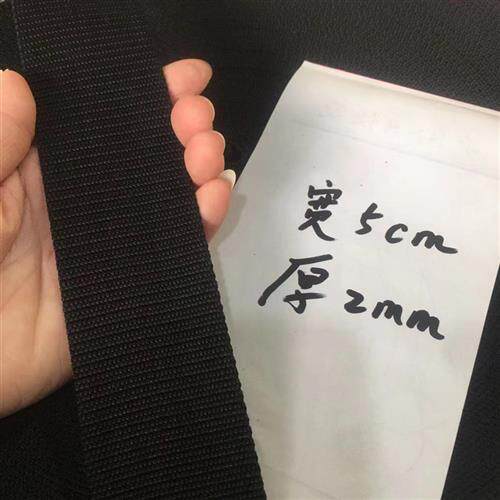 宽5cm
厚2mm